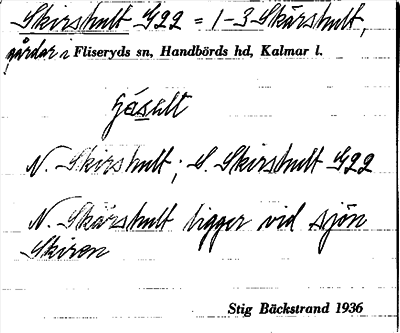 Skirshult G22 = 1-3 Skärshult,
gårdar i Fliseryds sn, Handbörds hd, Kalmar l.
N. Skirshult; S. Skirshult G22
N. Skärshult ligger vid sjön
Skiren
Stig Bäckstrand 1936